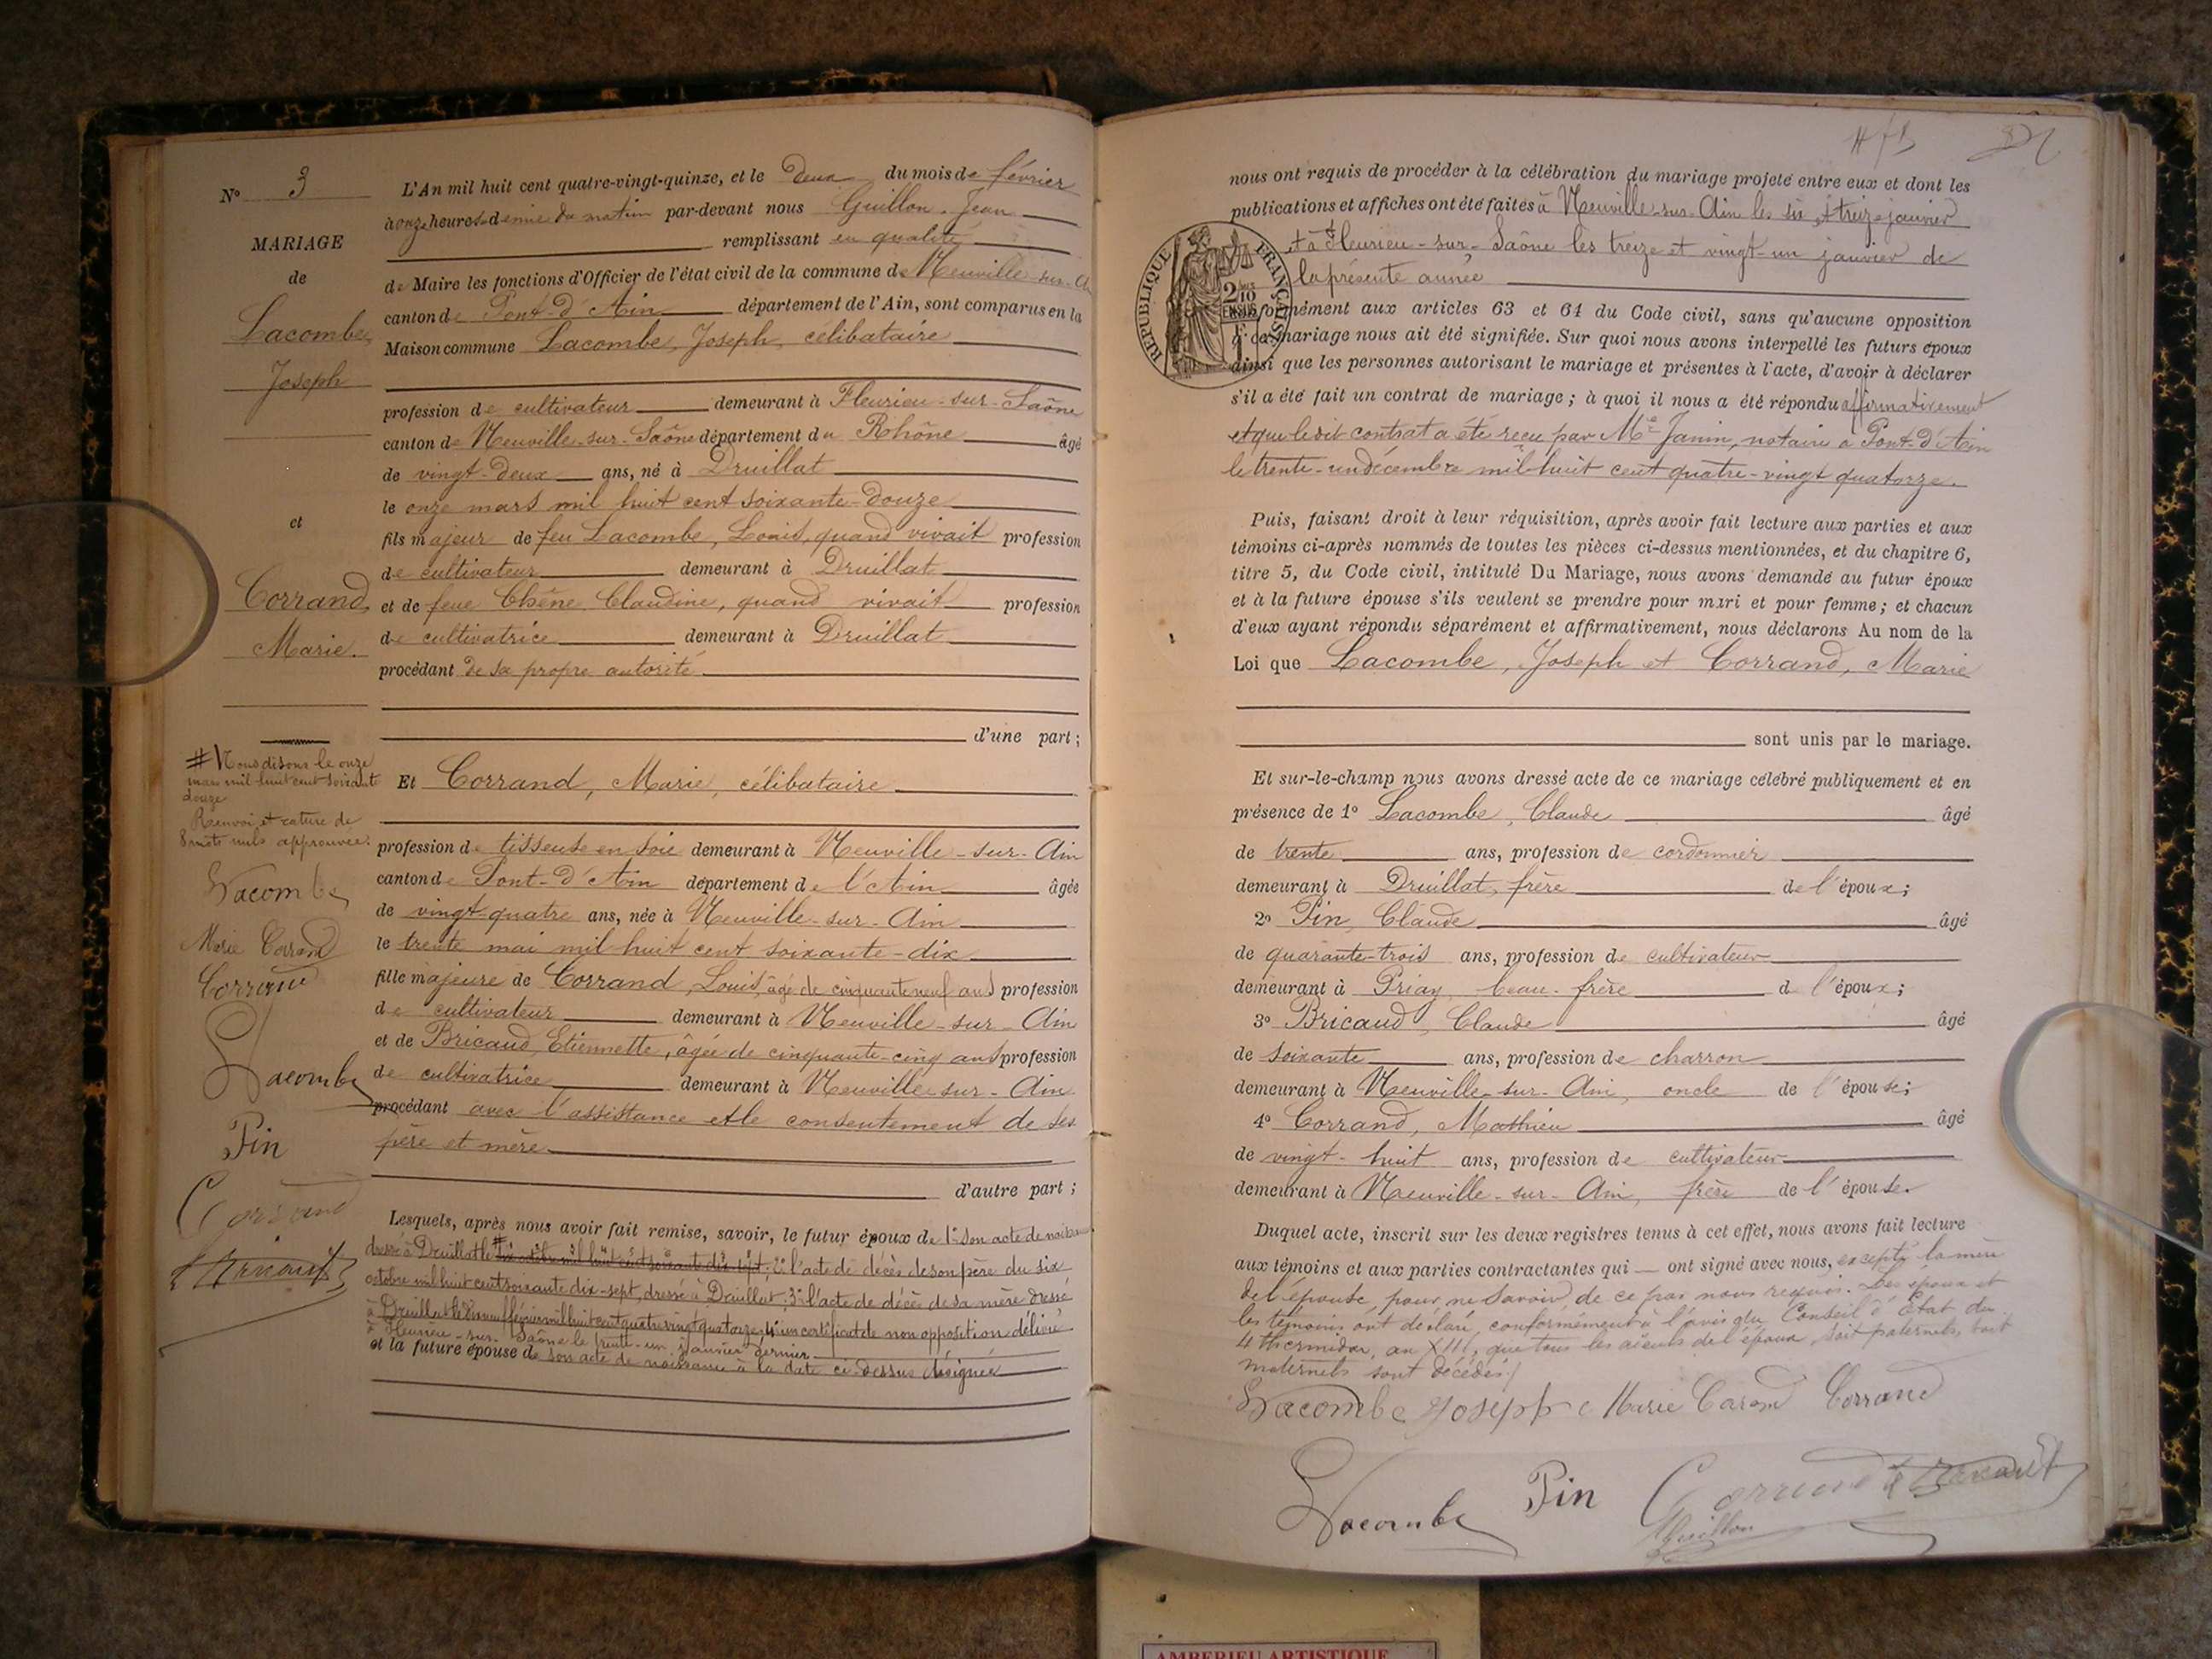 N° 3
MARIAGE
de
Lacombe,
Joseph
et
Corrand,
Marie.
# Nous disons le onze
mars mil huit cent soixante
douze
Renvoi et rature de
8 mots nuls approuvée.
Lacombe
Marie Corrand
Corrand
Lacombe
Pin
Corrand
L'An mil huit cent quatre-vingt-quinze, et le deux du mois de février
à onze heures et demie du matin par-devant nous Guillon, Jean
remplissant en qualité
de Maire les fonctions d'Officier de l'état civil de la commune de Neuville-sur-
canton de Pont-d'Ain département de l'Ain, sont comparus en la
Maison commune Lacombe, Joseph, célibataire
profession de cultivateur demeurant à Fleurieu-sur-Saône
canton de Neuville-sur-Saône département du Rhône âgé
de vingt-deux ans, né à Druillat
le onze mars mil huit cent soixante-douze
fils majeur de feu Lacombe, Louis, quand vivait profession
de cultivateur demeurant à Druillat
et de feue Chêne Claudine, quand vivait profession
de cultivatrice demeurant à Druillat
procédant de sa propre autorité
d'une part;
Et Corrand, Marie, célibataire
profession de tisseuse en soie demeurant à Neuville-sur-Ain
canton de Pont-d'Ain département de l'Ain âgée
de vingt-quatre ans, née à Neuville-sur-Ain
le trente mai mil huit cent soixante-dix
fille majeure de Corrand, Louis, âgé de cinquante neuf ans profession
de cultivateur demeurant à Neuville-sur-Ain
et de Bricaud, Etiennette, âgée de cinquante-cinq ans profession
de cultivatrice demeurant à Neuville-sur-Ain
procédant avec l'assistance et le consentement de ses
père et mère
d'autre part;
Lesquels, après nous avoir fait remise, savoir, le futur époux de 1° son acte de naissance
dressé à Druillat le # six octobre mil huit cent soixante dix-sept; 2° l'acte de décès de son père du six
octobre mil huit cent soixante dix-sept, dressé à Druillat; 3° l'acte de décès de sa mère dressé
à Druillat le dix neuf février mil huit cent quatre vingt quatorze; 4° un certificat de non opposition délivré
à Fleurieu-sur-Saône le trente-un janvier dernier
et la future épouse de son acte de naissance à la date ci-dessus désignée
nous ont requis de procéder à la célébration du mariage projeté entre eux et dont les
publications et affiches ont été faites à Neuville-sur-Ain les six et treize janvier
et à Fleurieu-sur-Saône les treize et vingt-un janvier de
la présente année
RÉPUBLIQUE FRANÇAISE
2/10
EN SUS
formément aux articles 63 et 64 du Code civil, sans qu'aucune opposition
mariage nous ait été signifiée. Sur quoi nous avons interpellé les futurs époux
ainsi que les personnes autorisant le mariage et présentes à l'acte, d'avoir à déclarer
s'il a été fait un contrat de mariage; à quoi il nous a été répondu affirmativement
et que le dit contrat a été reçu par Me Janin, notaire à Pont-d'Ain
le trente-un décembre mil-huit cent quatre-vingt quatorze.
Puis, faisant droit à leur réquisition, après avoir fait lecture aux parties et aux
témoins ci-après nommés de toutes les pièces ci-dessus mentionnées, et du chapitre 6,
titre 5, du Code civil, intitulé Du Mariage, nous avons demandé au futur époux
et à la future épouse s'ils veulent se prendre pour mari et pour femme; et chacun
d'eux ayant répondu séparément et affirmativement, nous déclarons Au nom de la
Loi que Lacombe, Joseph et Corrand, Marie
sont unis par le mariage.
Et sur-le-champ nous avons dressé acte de ce mariage célébré publiquement et en
présence de 1° Lacombe, Claude âgé
de trente ans, profession de cordonnier
demeurant à Druillat, frère de l'époux;
2° Pin, Claude âgé
de quarante-trois ans, profession de cultivateur
demeurant à Priay, beau-frère de l'époux;
3° Bricaud, Claude âgé
de soixante ans, profession de charron
demeurant à Neuville-sur-Ain, oncle de l'épouse;
4° Corrand, Mathieu âgé
de vingt-huit ans, profession de cultivateur
demeurant à Neuville-sur-Ain, frère de l'épouse.
Duquel acte, inscrit sur les deux registres tenus à cet effet, nous avons fait lecture
aux témoins et aux parties contractantes qui ont signé avec nous, excepté la mère
de l'épouse, pour ne savoir de ce par nous requis. Les époux et
les témoins ont déclaré, conformément à l'avis du Conseil d'Etat du
4 thermidor, an XIII, que tous les aïeuls de l'époux, soit paternels, soit
maternels sont décédés.
Lacombe Joseph Marie Corrand Corrand
Lacombe Pin Corrand
Guillon
AMBERIEU ARTISTIQUE